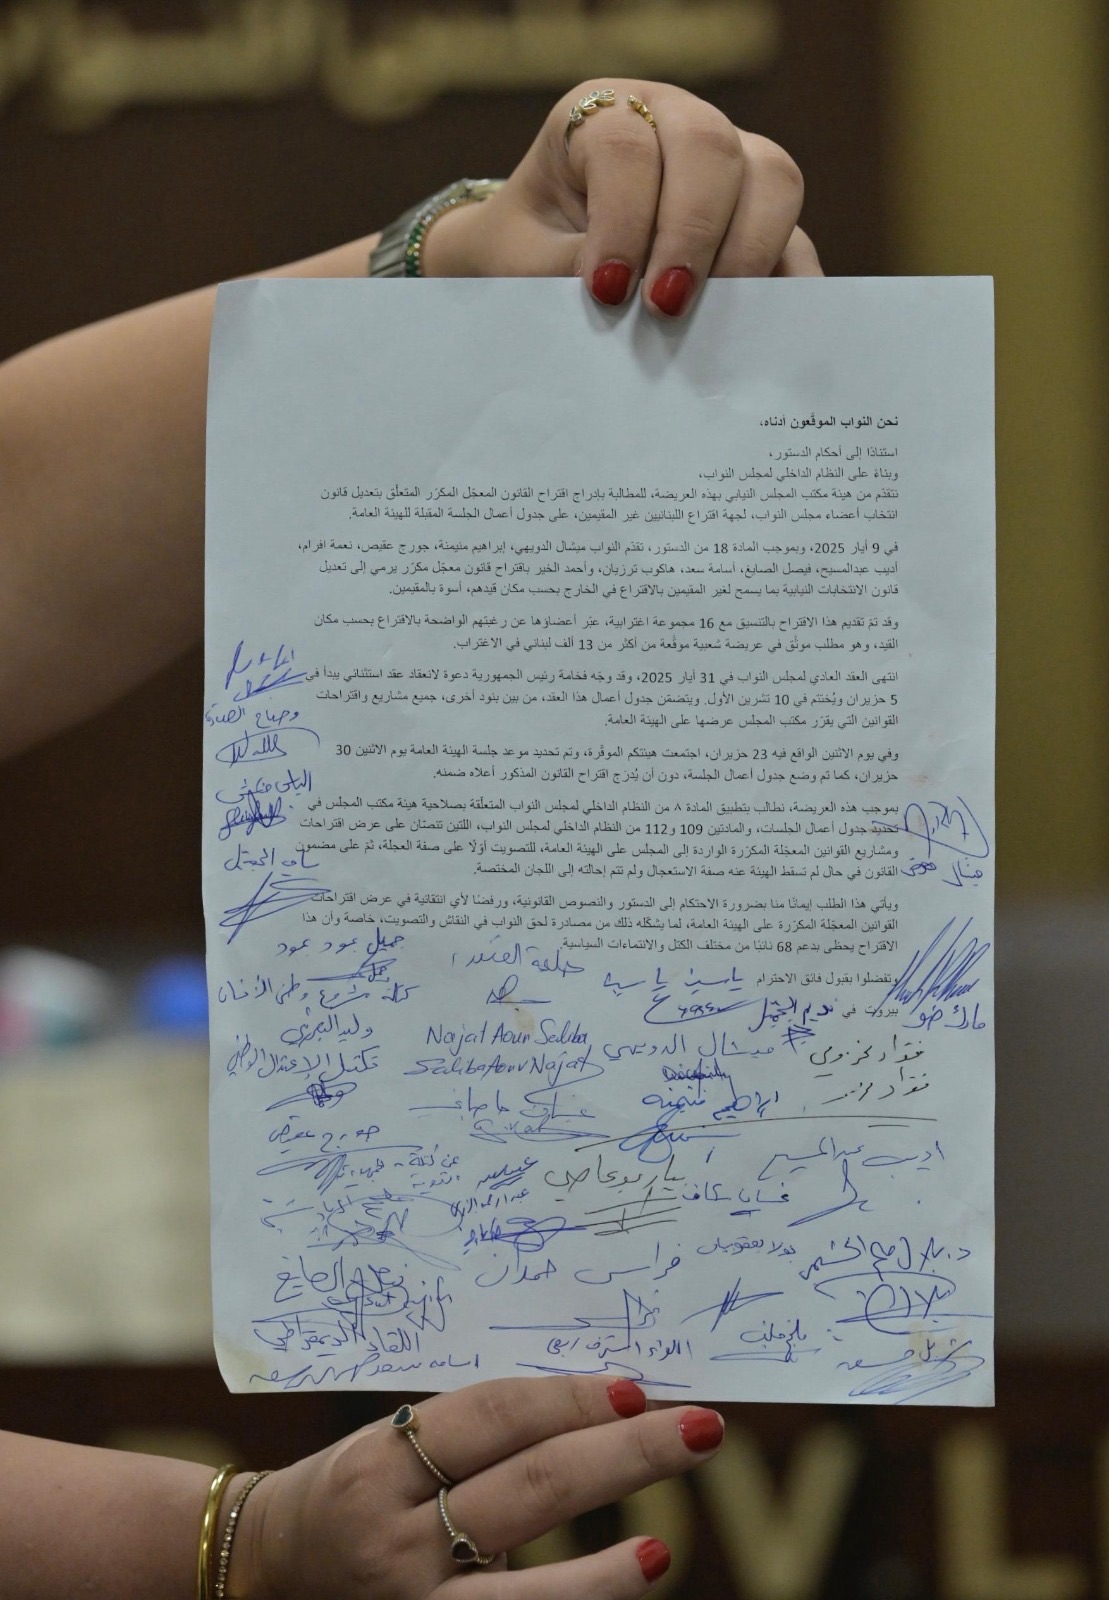 نحن النواب الموقّعون أدناه،
استنادًا إلى أحكام الدستور،
وبناءً على النظام الداخلي لمجلس النواب،
نتقدّم من هيئة مكتب المجلس النيابي بهذه العريضة، للمطالبة بإدراج اقتراح القانون المعجّل المكرّر المتعلّق بتعديل قانون
انتخاب أعضاء مجلس النواب، لجهة اقتراع اللبنانيين غير المقيمين، على جدول أعمال الجلسة المقبلة للهيئة العامة.
في 9 أيار 2025، وبموجب المادة 18 من الدستور، تقدّم النواب ميشال الدويهي، إبراهيم منيمنة، جورج عقيص، نعمة افرام،
أديب عبدالمسيح، فيصل الصايغ، أسامة سعد، هاكوب ترزيان، وأحمد الخير باقتراح قانون معجّل مكرّر يرمي إلى تعديل
قانون الانتخابات النيابية بما يسمح لغير المقيمين بالاقتراع في الخارج بحسب مكان قيدهم، أسوة بالمقيمين.
وقد تمّ تقديم هذا الاقتراح بالتنسيق مع 16 مجموعة اغترابية، عبّر أعضاؤها عن رغبتهم الواضحة بالاقتراع بحسب مكان
القيد، وهو مطلب موثّق في عريضة شعبية موقّعة من أكثر من 13 ألف لبناني في الاغتراب.
انتهى العقد العادي لمجلس النواب في 31 أيار 2025، وقد وجّه فخامة رئيس الجمهورية دعوة لانعقاد عقد استثنائي يبدأ في
5 حزيران ويُختتم في 10 تشرين الأول. ويتضمّن جدول أعمال هذا العقد، من بين بنود أخرى، جميع مشاريع واقتراحات
القوانين التي يقرّر مكتب المجلس عرضها على الهيئة العامة.
وفي يوم الاثنين الواقع فيه 23 حزيران، اجتمعت هيئتكم الموقّرة، وتم تحديد موعد جلسة الهيئة العامة يوم الاثنين 30
حزيران، كما تم وضع جدول أعمال الجلسة، دون أن يُدرَج اقتراح القانون المذكور أعلاه ضمنه.
بموجب هذه العريضة، نطالب بتطبيق المادة ٨ من النظام الداخلي لمجلس النواب المتعلّقة بصلاحية هيئة مكتب المجلس في
تحديد جدول أعمال الجلسات، والمادتين 109 و112 من النظام الداخلي لمجلس النواب، اللتين تنصّان على عرض اقتراحات
ومشاريع القوانين المعجّلة المكرّرة الواردة إلى المجلس على الهيئة العامة، للتصويت أوّلًا على صفة العجلة، ثمّ على مضمون
القانون في حال لم تسقط الهيئة عنه صفة الاستعجال ولم تتم إحالته إلى اللجان المختصة.
ويأتي هذا الطلب إيمانًا منا بضرورة الاحتكام إلى الدستور والنصوص القانونية، ورفضًا لأي انتقائية في عرض اقتراحات
القوانين المعجّلة المكرّرة على الهيئة العامة، لما يشكّله ذلك من مصادرة لحق النواب في النقاش والتصويت، خاصة وأن هذا
الاقتراح يحظى بدعم 68 نائبًا من مختلف الكتل والانتماءات السياسية.
وتفضلوا بقبول فائق الاحترام
بيروت في
ميشال معوض
مارك ضو
الياس حنكش
سامي الجميل
جميل عبود عبود
ياسين ياسين
نديم الجميل
وليد البعريني
تكتل الاعتدال الوطني
Najat Aoun Saliba
Saliba Aoun Najat
ميشال الدويهي
فؤاد مخزومي
ابراهيم منيمنة
جورج عقيص
اديب عبد المسيح
بيار بوعاصي
غسان سكاف
بولا يعقوبيان
فراس حمدان
فيصل الصايغ
اللقاء الديمقراطي
اسامه سعد
اللواء اشرف ريفي
ملحم خلف